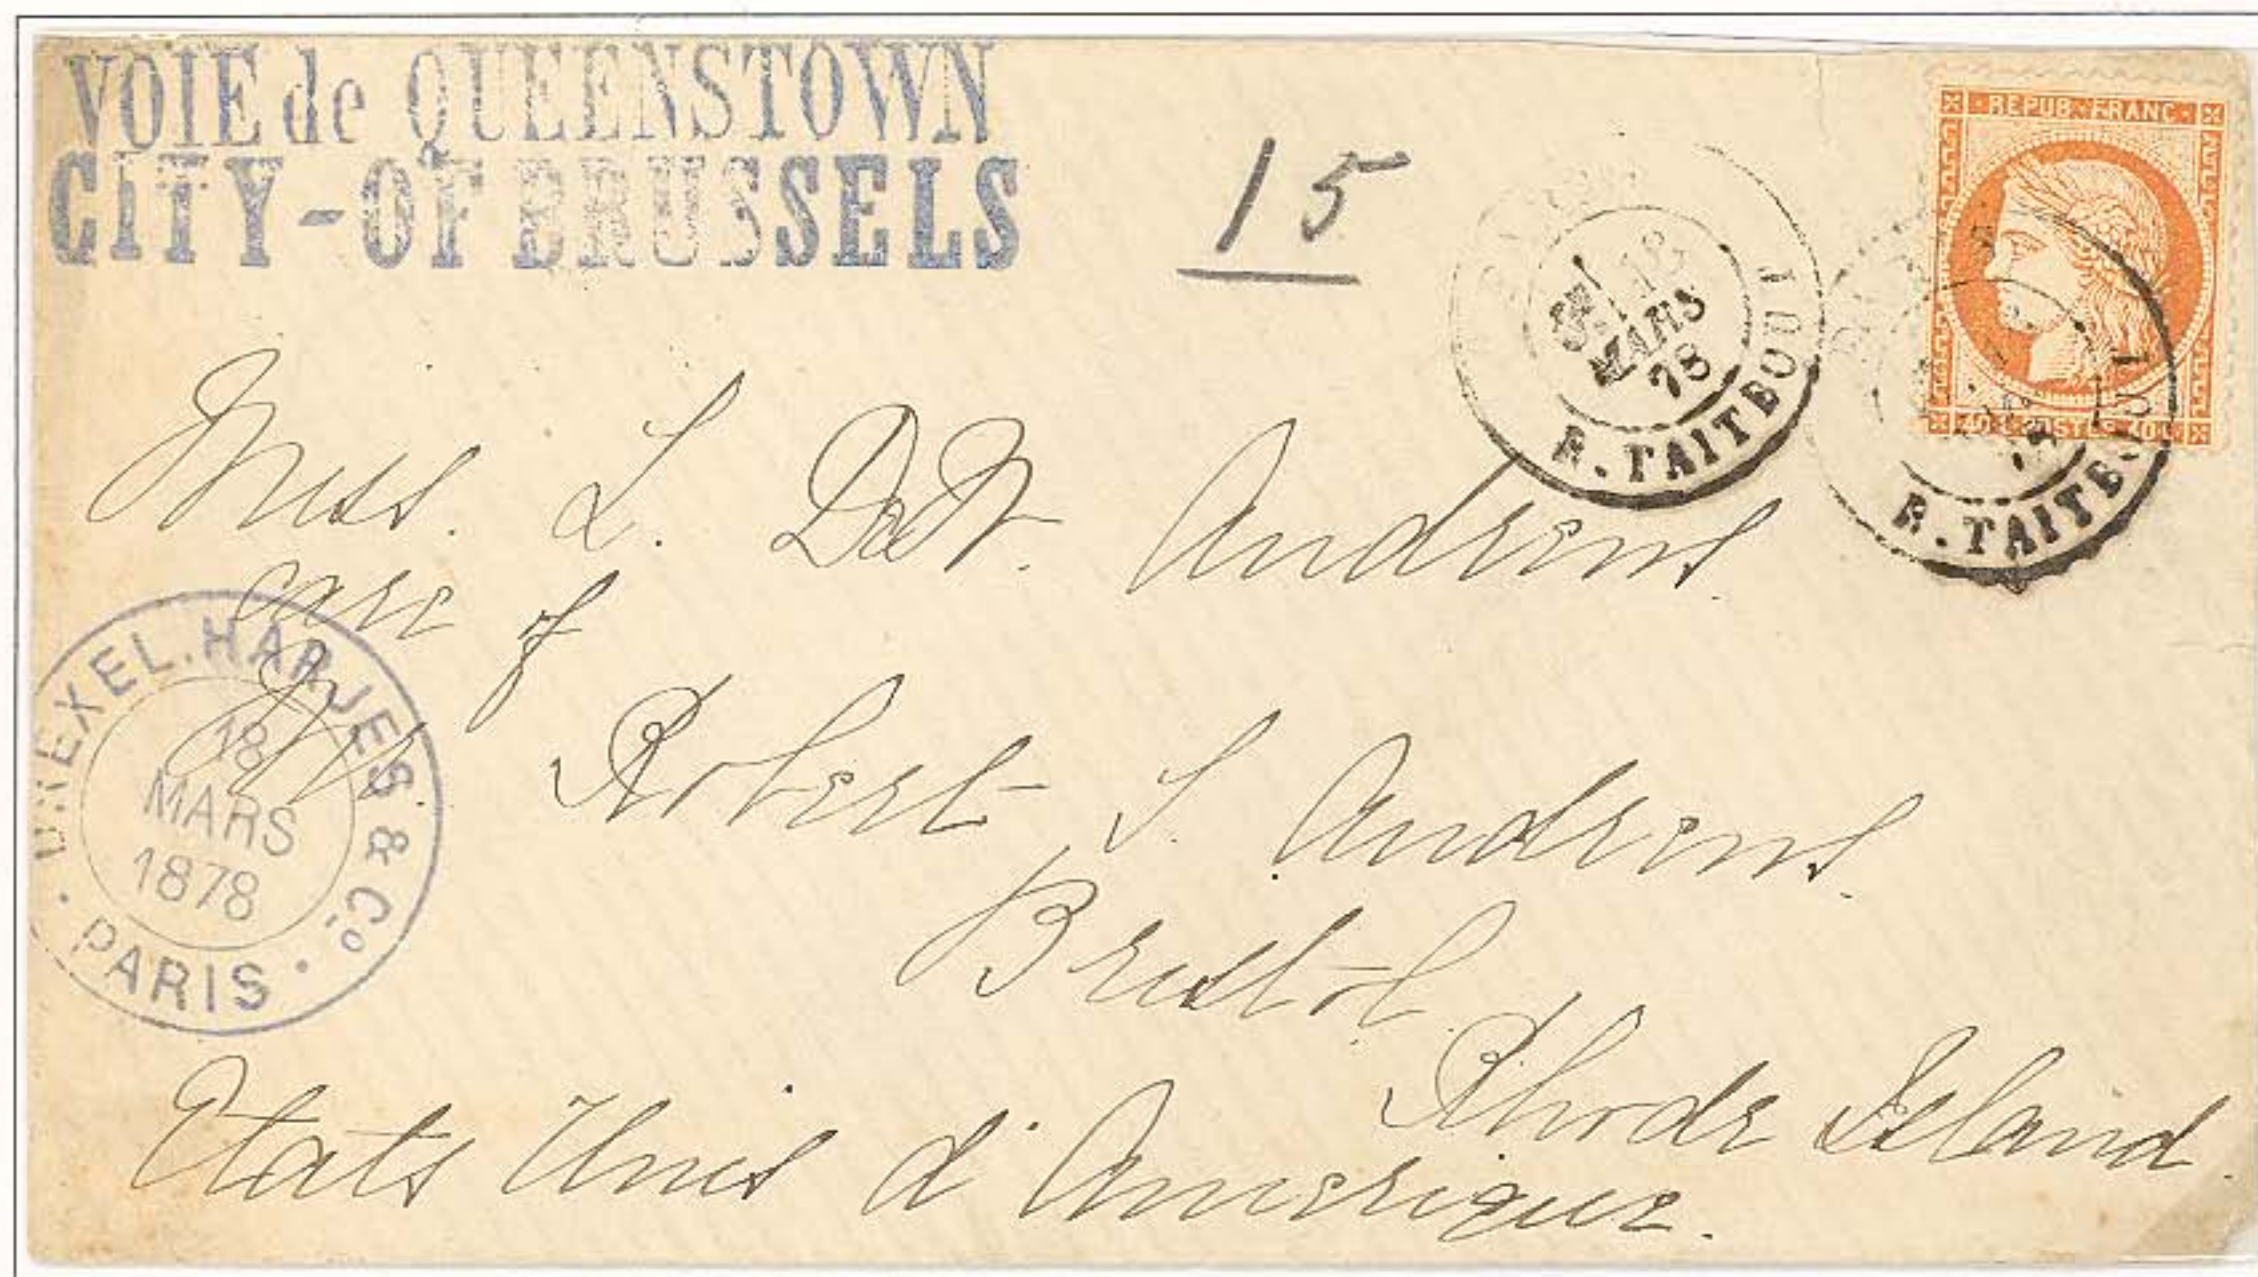 VOIE de QUEENSTOWN
CITY-OF BRUSSELS
15
REPUB FRANC
18
MARS
78
R. TAITBOUT
40 C POSTES 40 C
R. TAITBOUT
Miss. L. DeW. Andrews.
care of
Mrs. Robert S. Andrews.
Bristol.
Rhode Island.
Etats Unis d'Amerique.
DREXEL. HARJES & Co.
18
MARS
1878
PARIS